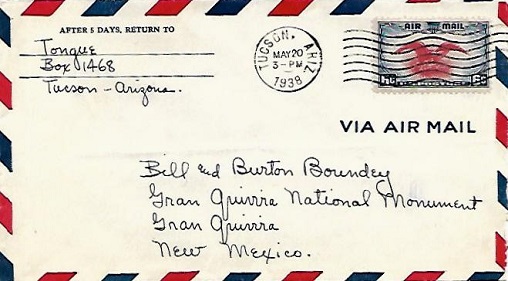 AFTER 5 DAYS, RETURN TO
Tongue
Box 1468
Tucson - Arizona.
TUCSON, ARIZ.
MAY 20
3 - PM
1938
AIR MAIL
6¢ 6¢
VIA AIR MAIL
Bill and Burton Boundey
Gran Quivira National Monument
Gran Quivira
New Mexico.